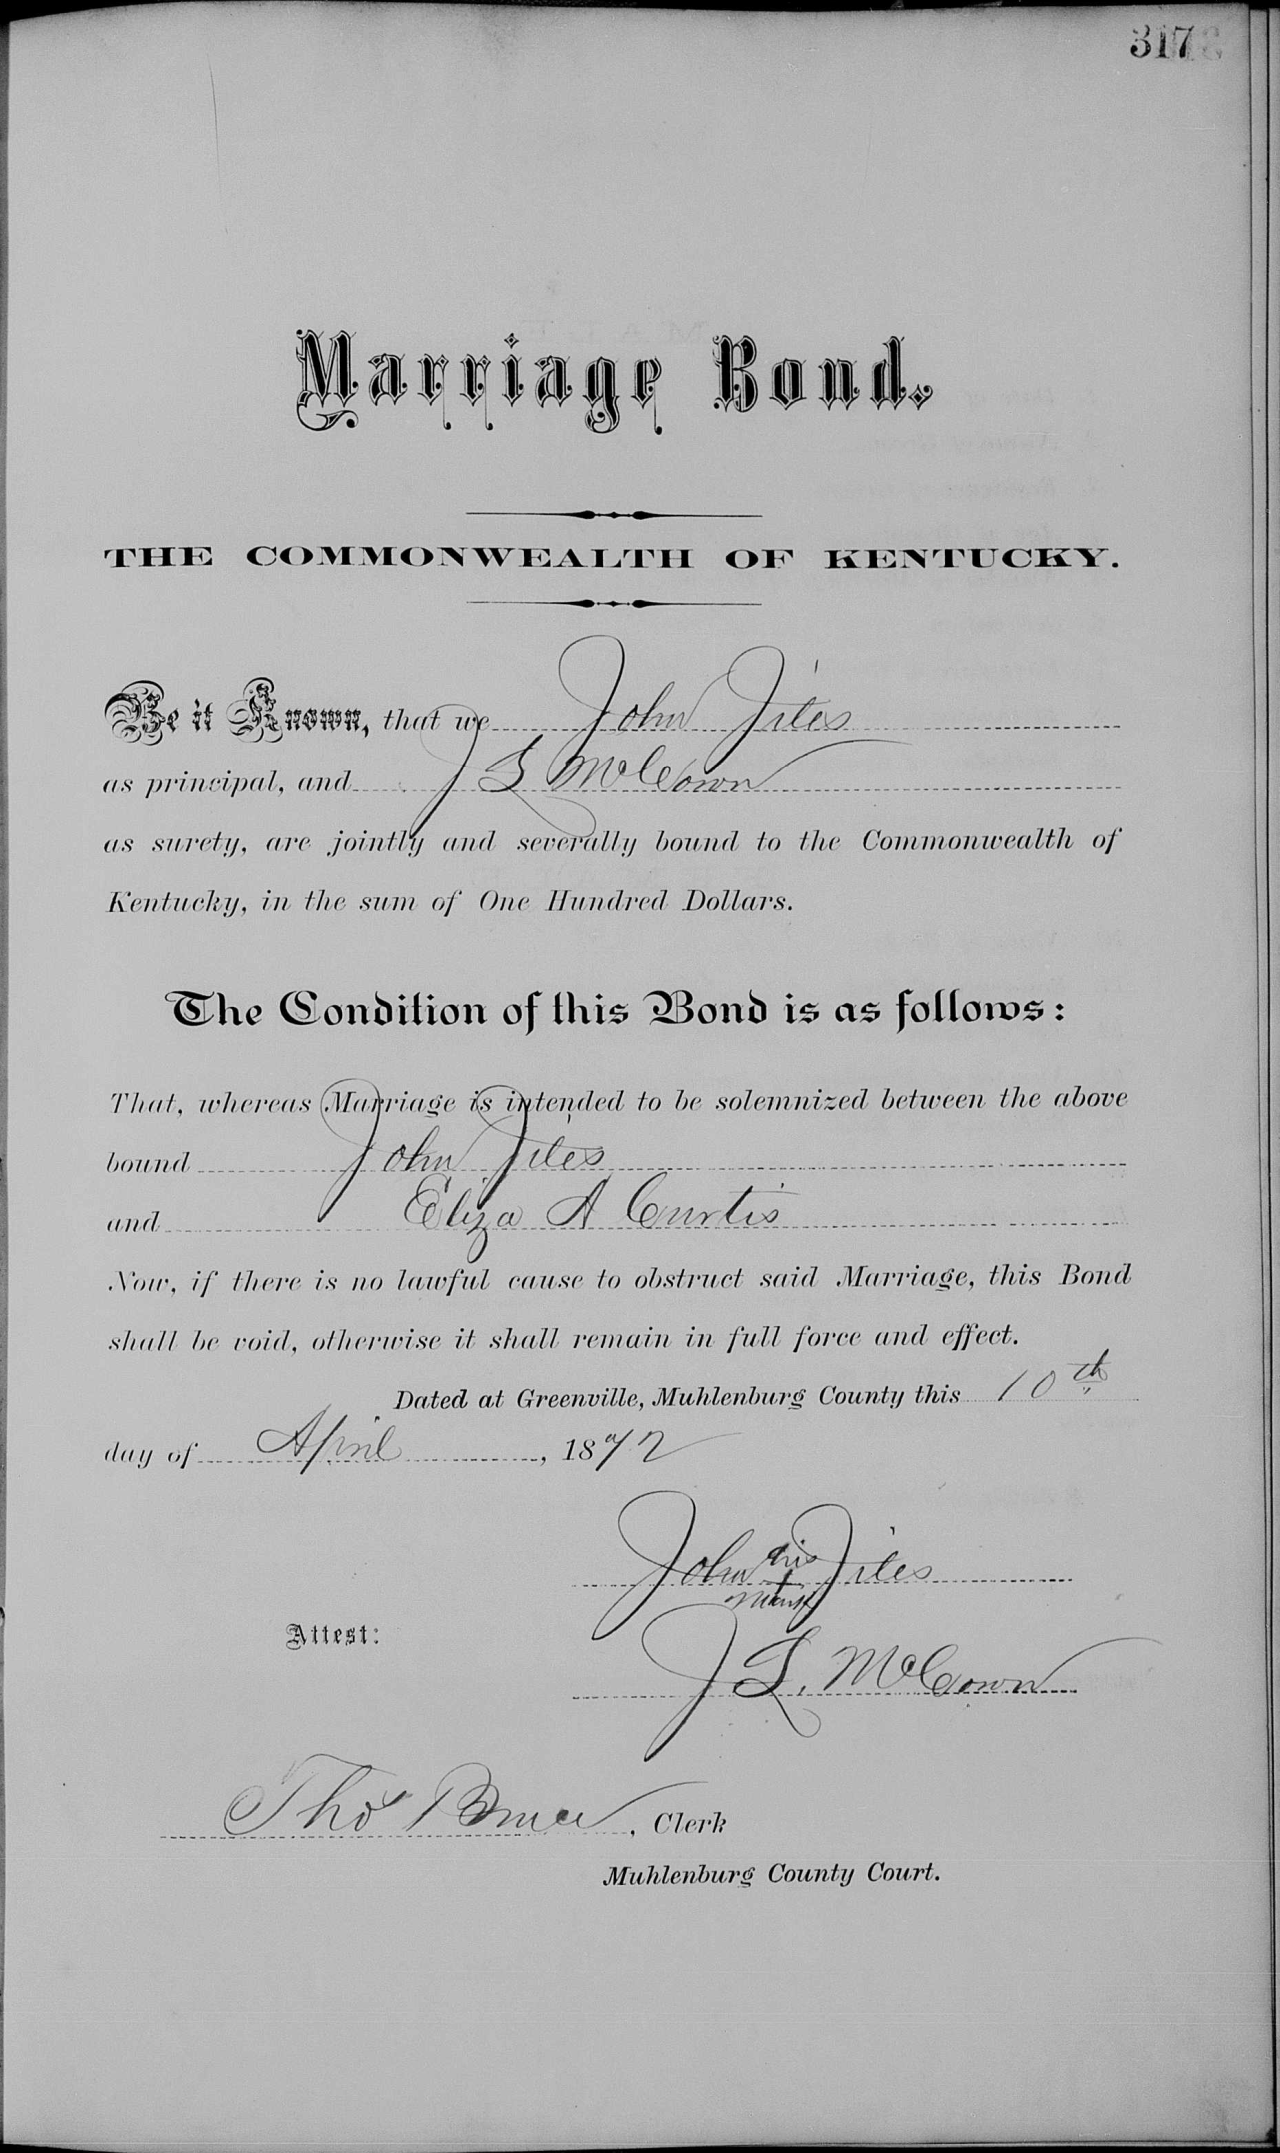 317
Marriage Bond.
THE COMMONWEALTH OF KENTUCKY.
Be it Known, that we John Jiles
as principal, and J L McCown
as surety, are jointly and severally bound to the Commonwealth of
Kentucky, in the sum of One Hundred Dollars.
The Condition of this Bond is as follows:
That, whereas Marriage is intended to be solemnized between the above
bound John Jiles
and Eliza A Curtis
Now, if there is no lawful cause to obstruct said Marriage, this Bond
shall be void, otherwise it shall remain in full force and effect.
Dated at Greenville, Muhlenburg County this 10th
day of April, 1872
John his Jiles
mark
Attest:
J L. McCown
Thos Bruce, Clerk
Muhlenburg County Court.